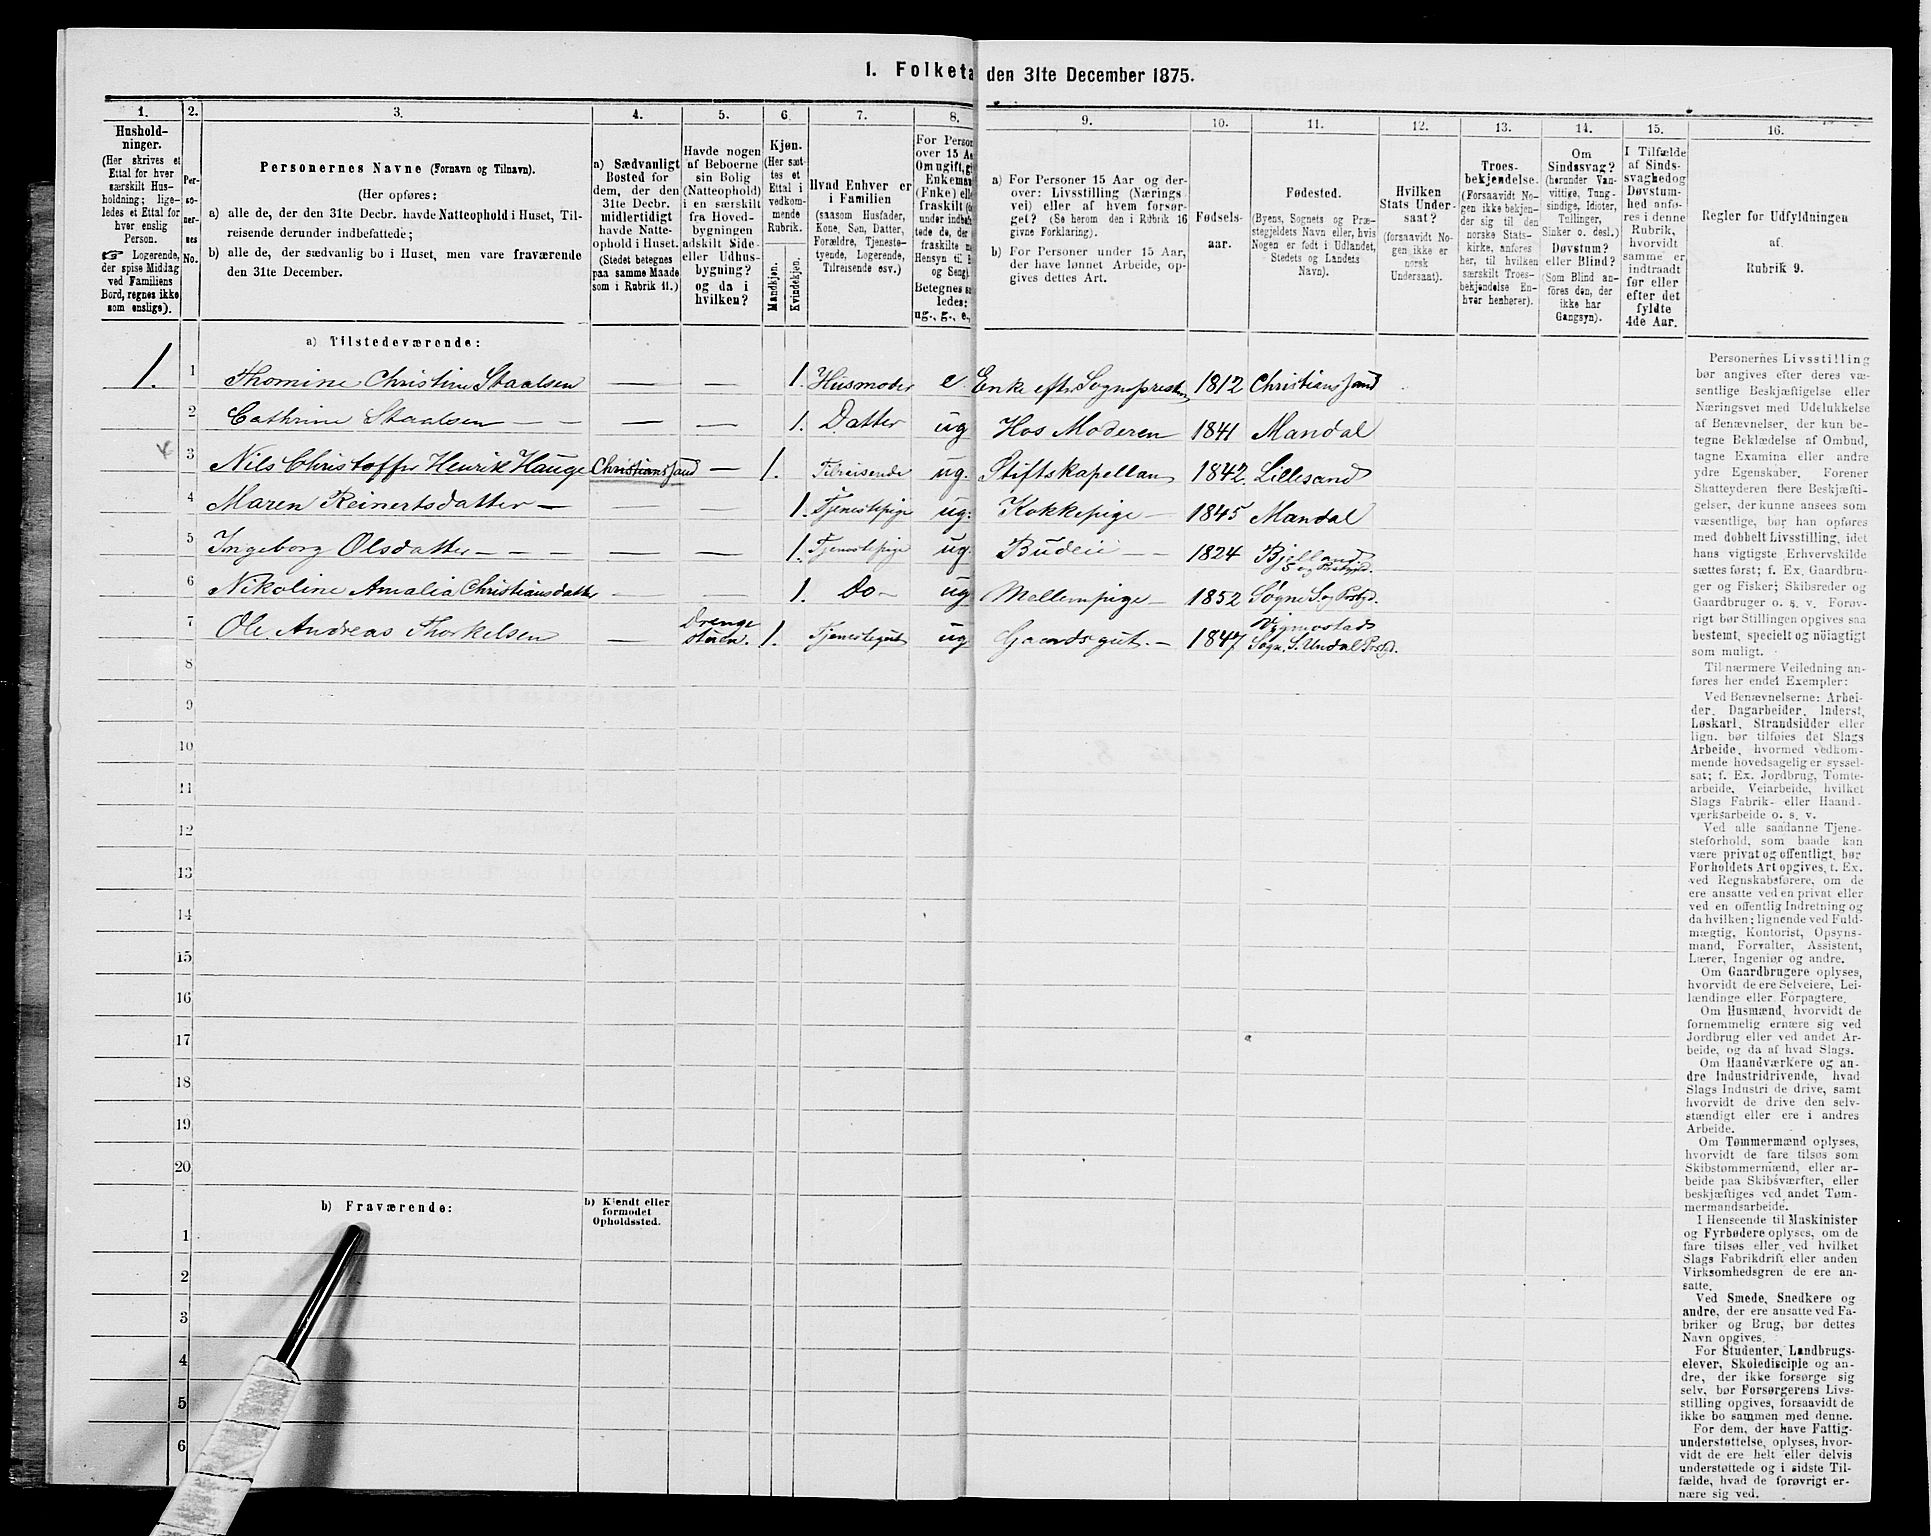 I. Folketa den 31te December 1875.
1. 2. 3. 4. 5. 6. 7. 8. 9. 10. 11. 12. 13. 14. 15. 16.
Hushold-
ninger.
(Her skrives et
Ettal for hver
særskilt Hus-
holdning; lige-
ledes et Ettal for
hver enslig
Person.
☞ Logerende,
der spise Middag
ved Familiens
Bord, regnes ikke
som enslige).
Per-
so-
ner-
nes
No.
Personernes Navne (Fornavn og Tilnavn).
(Her opføres:
a) alle de, der den 31te Decbr. havde Natteophold i Huset, Til-
reisende derunder indbefattede;
b) alle de, der sædvanlig bo i Huset, men vare fraværende
den 31te December.
a) Sædvanligt
Bosted for
dem, der den
31te Decbr.
midlertidigt
havde Natte-
ophold i Huset.
(Stedet betegnes
paa samme Maade
som i Rubrik 11.)
Havde nogen
af Beboerne
sin Bolig
(Natteophold)
i en særskilt
fra Hoved-
bygningen
adskilt Side-
eller Udhus-
bygning?
og da i
hvilken?
Kjøn.
(Her sæt-
tes et
Ettal i
vedkom-
mende
Rubrik.
Mandkjøn.
Kvindekjøn.
Hvad Enhver er
i Familien
(saasom Husfader,
Kone, Søn, Datter,
Forældre, Tjeneste-
tyende, Logerende,
Tilreisende osv.)
For Person
over 15 Aa
Om ugift, g
Enkeman
(Enke) elle
fraskilt (
under indbef
tede de, der
fraskilte
Hensyn til B
og Seng).
Betegnes sa
ledes:
ug., g., e.,
a) For Personer 15 Aar og der-
over: Livsstilling (Nærings-
vei) eller af hvem forsør-
get? (Se herom den i Rubrik 16
givne Forklaring).
b) For Personer under 15 Aar,
der have lønnet Arbeide, op-
gives dettes Art.
Fødsels-
aar.
Fødested.
(Byens, Sognets og Præ-
stegjeldets Navn eller, hvis
Nogen er født i Udlandet,
Stedets og Landets
Navn).
Hvilken
Stats Under-
saat?
(forsaavidt No-
gen ikke er
norsk
Undersaat).
Troes-
bekjendelse.
(Forsaavidt No-
gen ikke bekjen-
der sig til den
norske Stats-
kirke, anføres
her, til hvilken
særskilt Troes-
bekjendelse En-
hver henhører).
Om
Sindssvag?
(herunder Van-
vittige, Idioter,
Tullinger,
Sinker o. desl.)
Døvstum?
eller Blind?
(Som Blind an-
føres den, der
ikke har
Gangsyn).
I Tilfælde
af Sinds-
svaghed og
Døvstum-
hed anfø-
res i denne
Rubrik,
hvorvidt
samme er
indtraadt
før eller
efter det
fyldte
4de Aar.
Regler for Udfyldningen
af
Rubrik 9.
a) Tilstedeværende:
1. 1 Thomine Christine Staalsen — — 1. Husmoder e. Enke efter Sognepresten 1812 Christianssand
2 Cathrine Staalsen — — — — 1. Datter ug Hos Moderen 1841 Mandal
3 Nils Christoffer Henrik Hauge Christianssand — 1. Tilreisende ug. Stiftskapellan 1842 Lillesand
4 Maren Reinertsdatter — — — 1. Tjenestepige ug: Kokkepige — 1845 Mandal
5 Ingeborg Olsdatter — — — — — 1. Tjenestepige ug. Budeie — — 1824 Bjelland S og Prstgjd.
6 Nikoline Amalia Christiansdatter — — 1. Do — ug Mellempige — 1852 Søgne S. og Prstgd.
7 Ole Andreas Thorkelsen — Drengestuen. 1. Tjenestegut ug Gaardsgut. — 1847 Vigmostad Sogn, S. Undal Prstgd.
8
9
10
11
12
13
14
15
16
17
18
19
20
b) Fraværende:
b) Kjendt eller
formodet
Opholdssted.
1
2
3
4
5
6
Personernes Livsstilling
bør angives efter deres væ-
sentlige Beskjæftigelse eller
Næringsvei med Udelukkelse
af Benævnelser, der kun be-
tegne Beklædelse af Ombud,
tagne Examina eller andre
ydre Egenskaber. Forener
Skatteyderen flere Beskjæfti-
gelser, der kunne ansees som
væsentlige, bør han opføres
med dobbelt Livsstilling, idet
hans vigtigste Erhvervskilde
sættes først; f. Ex. Gaardbru-
ger og Fisker; Skibsreder og
Gaardbruger o. s. v. Forøv-
rigt bør Stillingen opgives saa
bestemt, specielt og nøiagtigt
som muligt.
Til nærmere Veiledning an-
føres her endel Exempler:
Ved Benævnelserne: Arbei-
der, Dagarbeider, Inderst,
Løskarl, Strandsidder eller
lign. bør tilføies det Slags
Arbeide, hvormed vedkom-
mende hovedsagelig er syssel-
sat; f. Ex. Jordbrug, Tomte-
arbeide, Veiarbeide, hvilket
Slags Fabrik- eller Haand-
værksarbeide o. s. v.
Ved alle saadanne Tjene-
steforhold, som baade kan
være privat og offentligt, bør
Forholdets Art opgives, f. Ex.
ved Regnskabsførere, om de
ere ansatte ved en privat eller
ved en offentlig Indretning og
da hvilken; lignende ved Fuld-
mægtig, Kontorist, Opsyns-
mand, Forvalter, Assistent,
Lærer, Ingeniør og andre.
Om Gaardbrugere oplyses,
hvorvidt de ere Selveiere, Lei-
lændinge eller Forpagtere.
Om Husmænd, hvorvidt de
fornemmelig ernære sig ved
Jordbrug eller ved andet Ar-
beide, og da af hvad Slags.
Om Haandværkere og an-
dre Industridrivende, hvad
Slags Industri de drive, samt
hvorvidt de drive den selv-
stændigt eller ere i andres
Arbeide.
Om Tømmermænd oplyses,
hvorvidt de fare tilsøs som
Skibstømmermænd, eller ar-
beide paa Skibsværfter, eller
beskjæftiges ved andet Tøm-
mermandsarbeide.
I Henseende til Maskinister
og Fyrbødere oplyses, om de
fare tilsøs eller ved hvilket
Slags Fabrikdrift eller anden
Virksomhedsgren de ere an-
satte.
Ved Smede, Snedkere og
andre, der ere ansatte ved Fa-
briker og Brug, bør dettes
Navn opgives.
For Studenter, Landbrugs-
elever, Skoledisciple og an-
dre, der ikke forsørge sig
selv, bør Forsørgerens Livs-
stilling opgives, forsaavidt de
ikke bo sammen med denne.
For dem, der have Fattig-
understøttelse, oplyses, hvor-
vidt de ere helt eller delvis
understøttede og i sidste Til-
fælde, hvad de forøvrigt er-
nære sig ved.